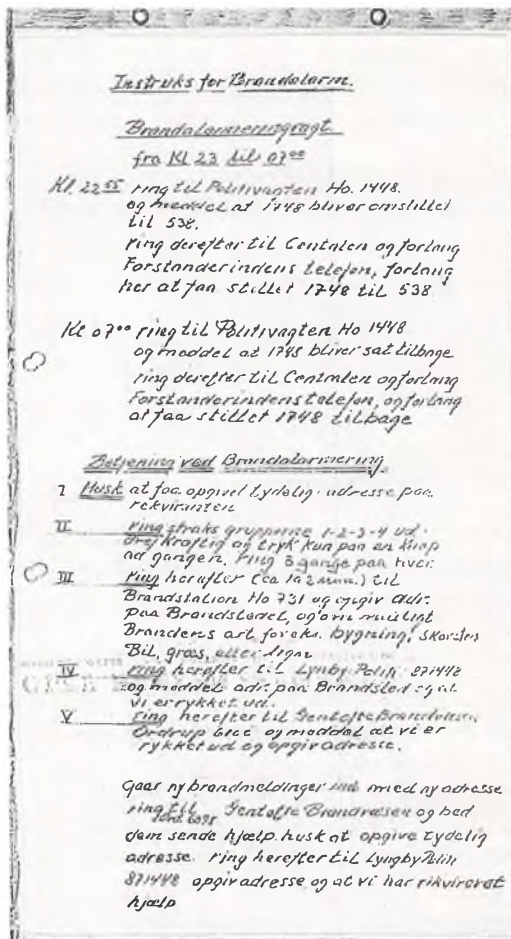 Instruks for Brandalarm.
Brandalarmeringvagt
fra Kl 23 til 07⁰⁰
Kl. 22⁵⁵ ring til Politivagten Ho. 1448.
og meddel at 1748 bliver omstillet
til 538.
ring derefter til Centalen og forlang
Forstanderindens telefon, forlang
her at faa stillet 1748 til 538
Kl 07⁰⁰ ring til Politivagten Ho 1448
og meddel at 1748 bliver sat tilbage
ring derefter til Centralen og forlang
Forstanderindens telefon, og forlang
at faa stillet 1748 tilbage
Betjening ved Brandalarmering
I Husk at faa opgivet tydelig adresse paa
rekviranten
II ring straks grupperne 1-2-3-4 ud.
drej kraftig og tryk kun paa en knap
ad gangen. ring 3 gange paa hver.
III ring herefter (ca 1 a 2 min.) til
Brandstation Ho 731 og opgiv adr.
paa Brandstedet, og om muligt
Brandens art foreks. bygning, skorsten
Bil, græs, eller lign
IV ring herefter til Lyngby Politi 871448
og meddel adr. paa Brandsted og at
vi er rykket ud.
V ring herefter til Gentofte
Ordrup og meddel at vi er
rykket ud og opgiv adresse.
Gaar ny brandmeldinger ind med ny adresse
ring til Gentofte Brandvæsen og bed
dem sende hjælp. husk at opgive tydelig
adresse. ring herefter til Lyngby Politi
871448 opgiv adresse og at vi har rikvireret
hjælp